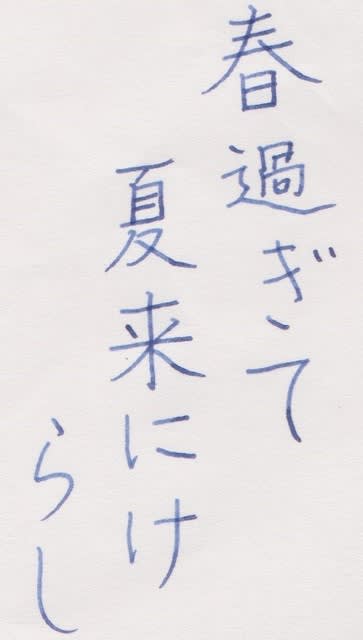 春過ぎて
夏来にけ
らし